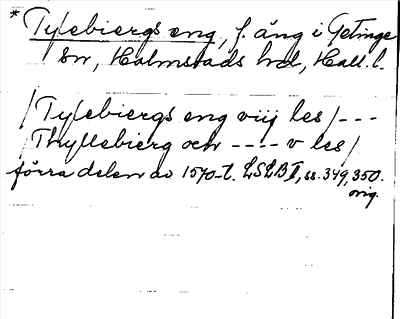 * Tylebiergs eng, f. äng i Getinge
sn, Halmstads hd, Hall. l.
/Tylebiergs eng viij les/ - - -
/Thyllebierg och - - - - v les/
förra delen av 1570-t. LSLB II, ss. 349, 350.
orig.